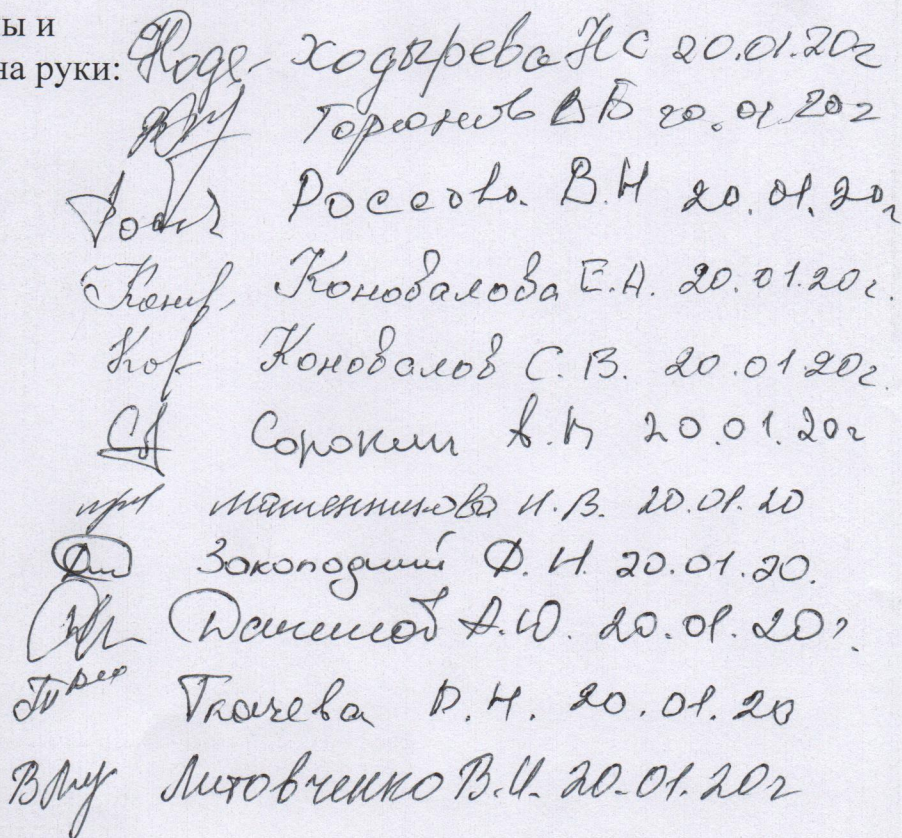 ы и
на руки: Ходырева НС 20.01.20г
Горюнов В Б 20.01.20г
Россова. В.Н 20.01.20г
Коновалова Е.А. 20.01.20г.
Коновалов С.В. 20.01 20г.
Сорокин А.Н 20.01.20г
И.В. 20.01.20
Закоподний Ф.Н. 20.01.20.
Данилов А.Ю. 20.01.20г.
Ткачева В.Н. 20.01.20
Литовченко В.И. 20.01.20г